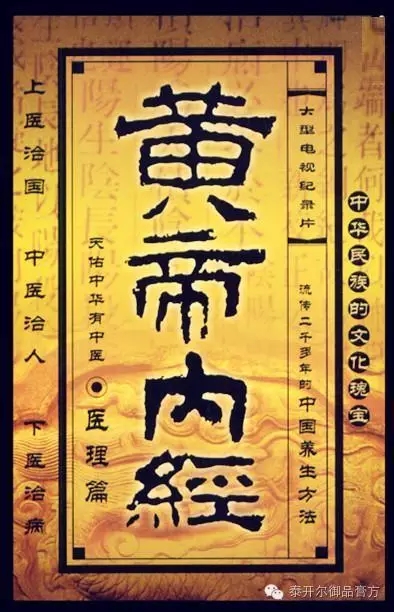 中华民族的文化瑰宝
大型电视纪录片
流传二千多年的中国养生方法
黄帝内經
天佑中华有中医
医理篇
上医治国 中医治人 下医治病
泰开尔御品膏方